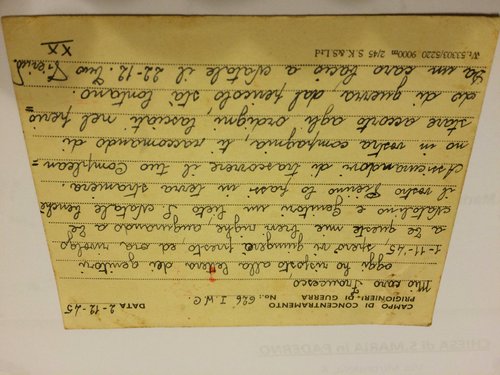 CAMPO DI CONCENTRAMENTO
PRIGIONIERI DI GUERRA No.: 626 I.W.C. DATA 2-12-45
Mio caro Francesco
oggi ho risposto alla lettera dei genitori
1-11-45, spero vi giungerà presto, ed ora rivolgo
a Te queste mie brevi righe, augurando a Te
Natalino e Genitori un lieto S. Natale benchè
il vostro Pierino lo passi in terra straniera.
Assicurandovi di trascorrere il tuo Complean=
no in vostra compagnia, ti raccomando di
stare accorto agli ordigni, lasciati nel perio=
do di guerra, dal pericolo stà lontano.
Da un caro bacio a Natale il 22-12. Tuo Pierino.
XX
Wt.53303/5220 9000m 2/45 S.K.&S.Ltd